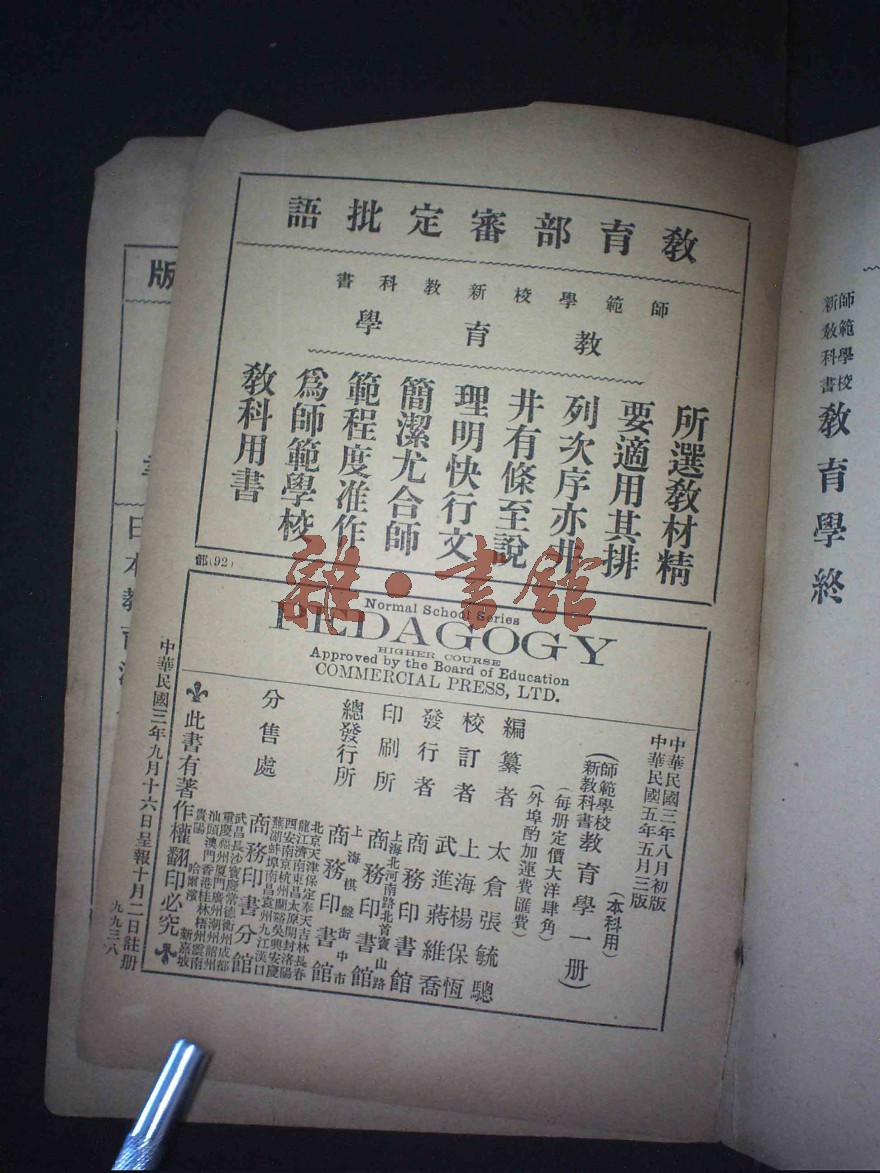 師範學校
新教科書
教育學終
教育部審定批語
師範學校新教科書
教育學
所選教材精
要適用其排
列次序亦井
井有條至說
理明快行文
簡潔尤合師
範程度准作
為師範學校
教科用書
部(92)
Normal School Series
PEDAGOGY
HIGHER COURSE
Approved by the Board of Education
COMMERCIAL PRESS, LTD.
中華民國三年八月初版
中華民國五年五月三版
(師範學校新教科書教育學一册)
(本科用)
(每册定價大洋肆角)
(外埠酌加運費匯費)
編纂者 太倉張毓驄
校訂者 上海楊保恆
武進蔣維喬
發行者 商務印書館
印刷所 上海北河南路北首寶山路
商務印書館
總發行所 上海棋盤街中市
商務印書館
分售處 商務印書分館
北京天津保定奉天吉林長春
龍江濟南東昌太原開封洛陽
西安南京杭州蘭谿吳興安慶
蕪湖蚌埠南昌袁州九江漢口
武昌長沙寶慶常德衡州成都
重慶福州廈門廣州潮州韶州
汕頭澳門香港桂林梧州雲南
貴陽 哈爾濱 新嘉坡
此書有著作權翻印必究
中華民國三年九月十六日呈報十月二日註册
九九三八
版
日本教育
雜·書館